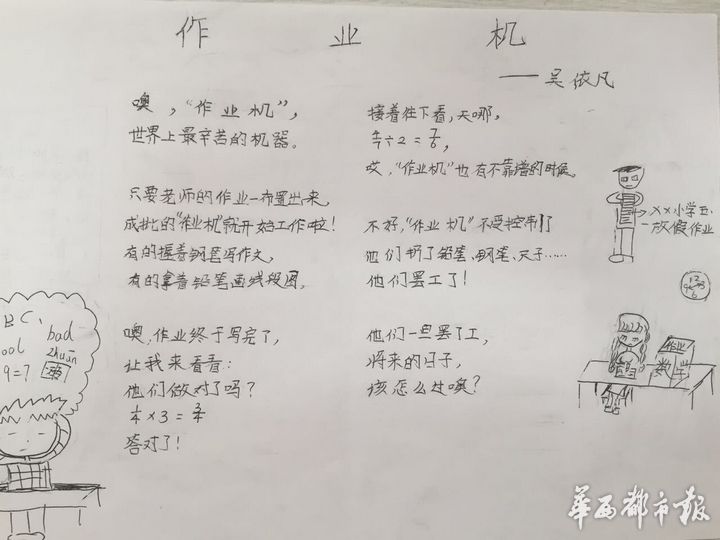 作 业 机
——吴依凡
噢，“作业机”，
世界上最辛苦的机器。
只要老师的作业一布置出来，
成批的“作业机”就开始工作啦！
有的握着钢笔写作文，
有的拿着铅笔画线段图。
噢，作业终于写完了，
让我来看看：
他们做对了吗？
1/4×3=3/4
答对了！
接着往下看，天哪，
÷2=7/6，
哎，“作业机”也有不靠谱的时候。
不好，“作业机”不受控制了
他们扔了铅笔、钢笔、尺子……
他们罢工了！
他们一旦罢了工，
将来的日子，
该怎么过噢？
BC、
ool bad
zhuān
9=7
××小学五·一
放假作业
12
6
作业
数学
华西都市报